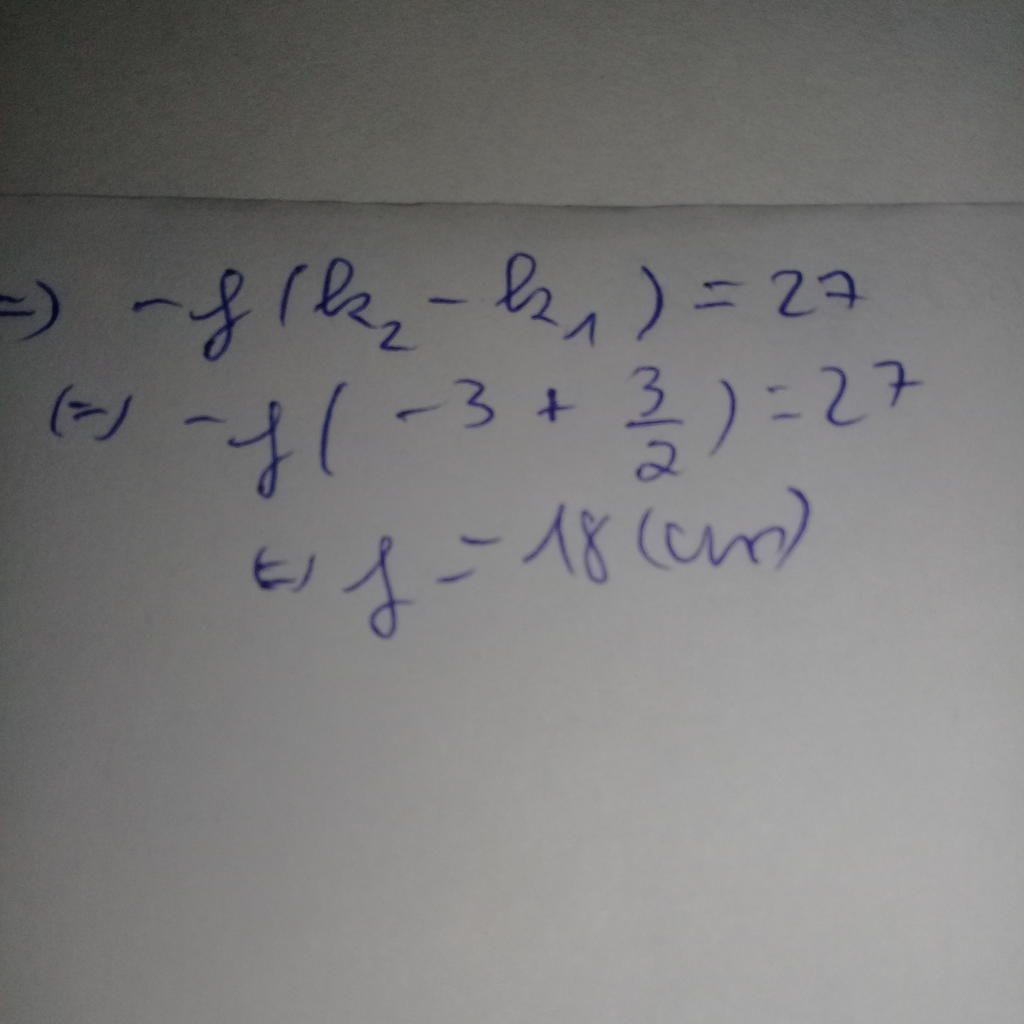 =) -f(k₂ - k₁) = 27
(=) -f(-3 + 3/2) = 27
(=) f = 18 (cm)